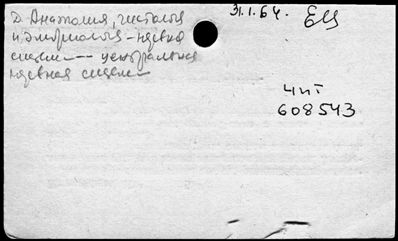 31.1.64. ЕЦ
Д Анатомия, гистология
и эмбриология - нервная
система — центральная
нервная система
Чит
608543